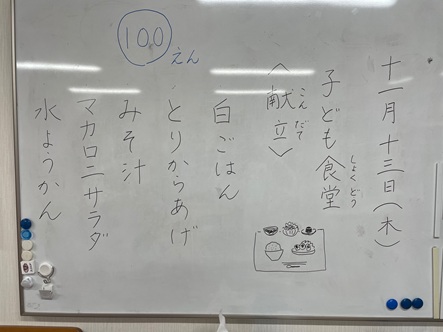 十一月十三日(木)
子ども食堂
しょくどう
〈献立〉
こんだて
白ごはん
・とりからあげ
みそ汁
マカロニサラダ
水ようかん
100えん